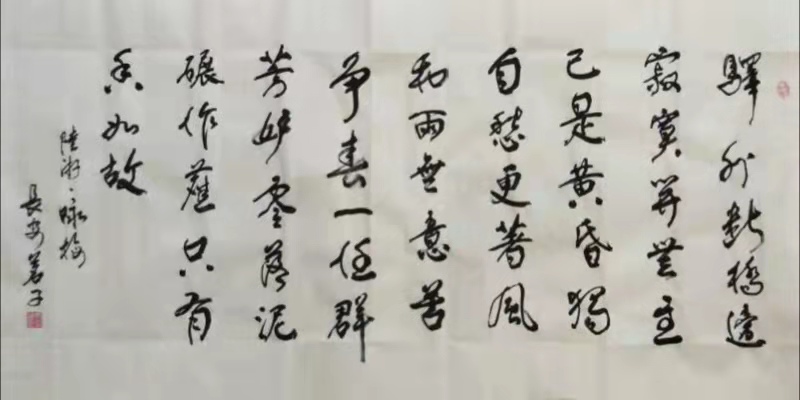 驛外斷橋邊
寂寞開無主
已是黄昏獨
自愁更著風
和雨無意苦
争春一任群
芳妒零落泥
碾作塵只有
香如故
陸游·咏梅
長安